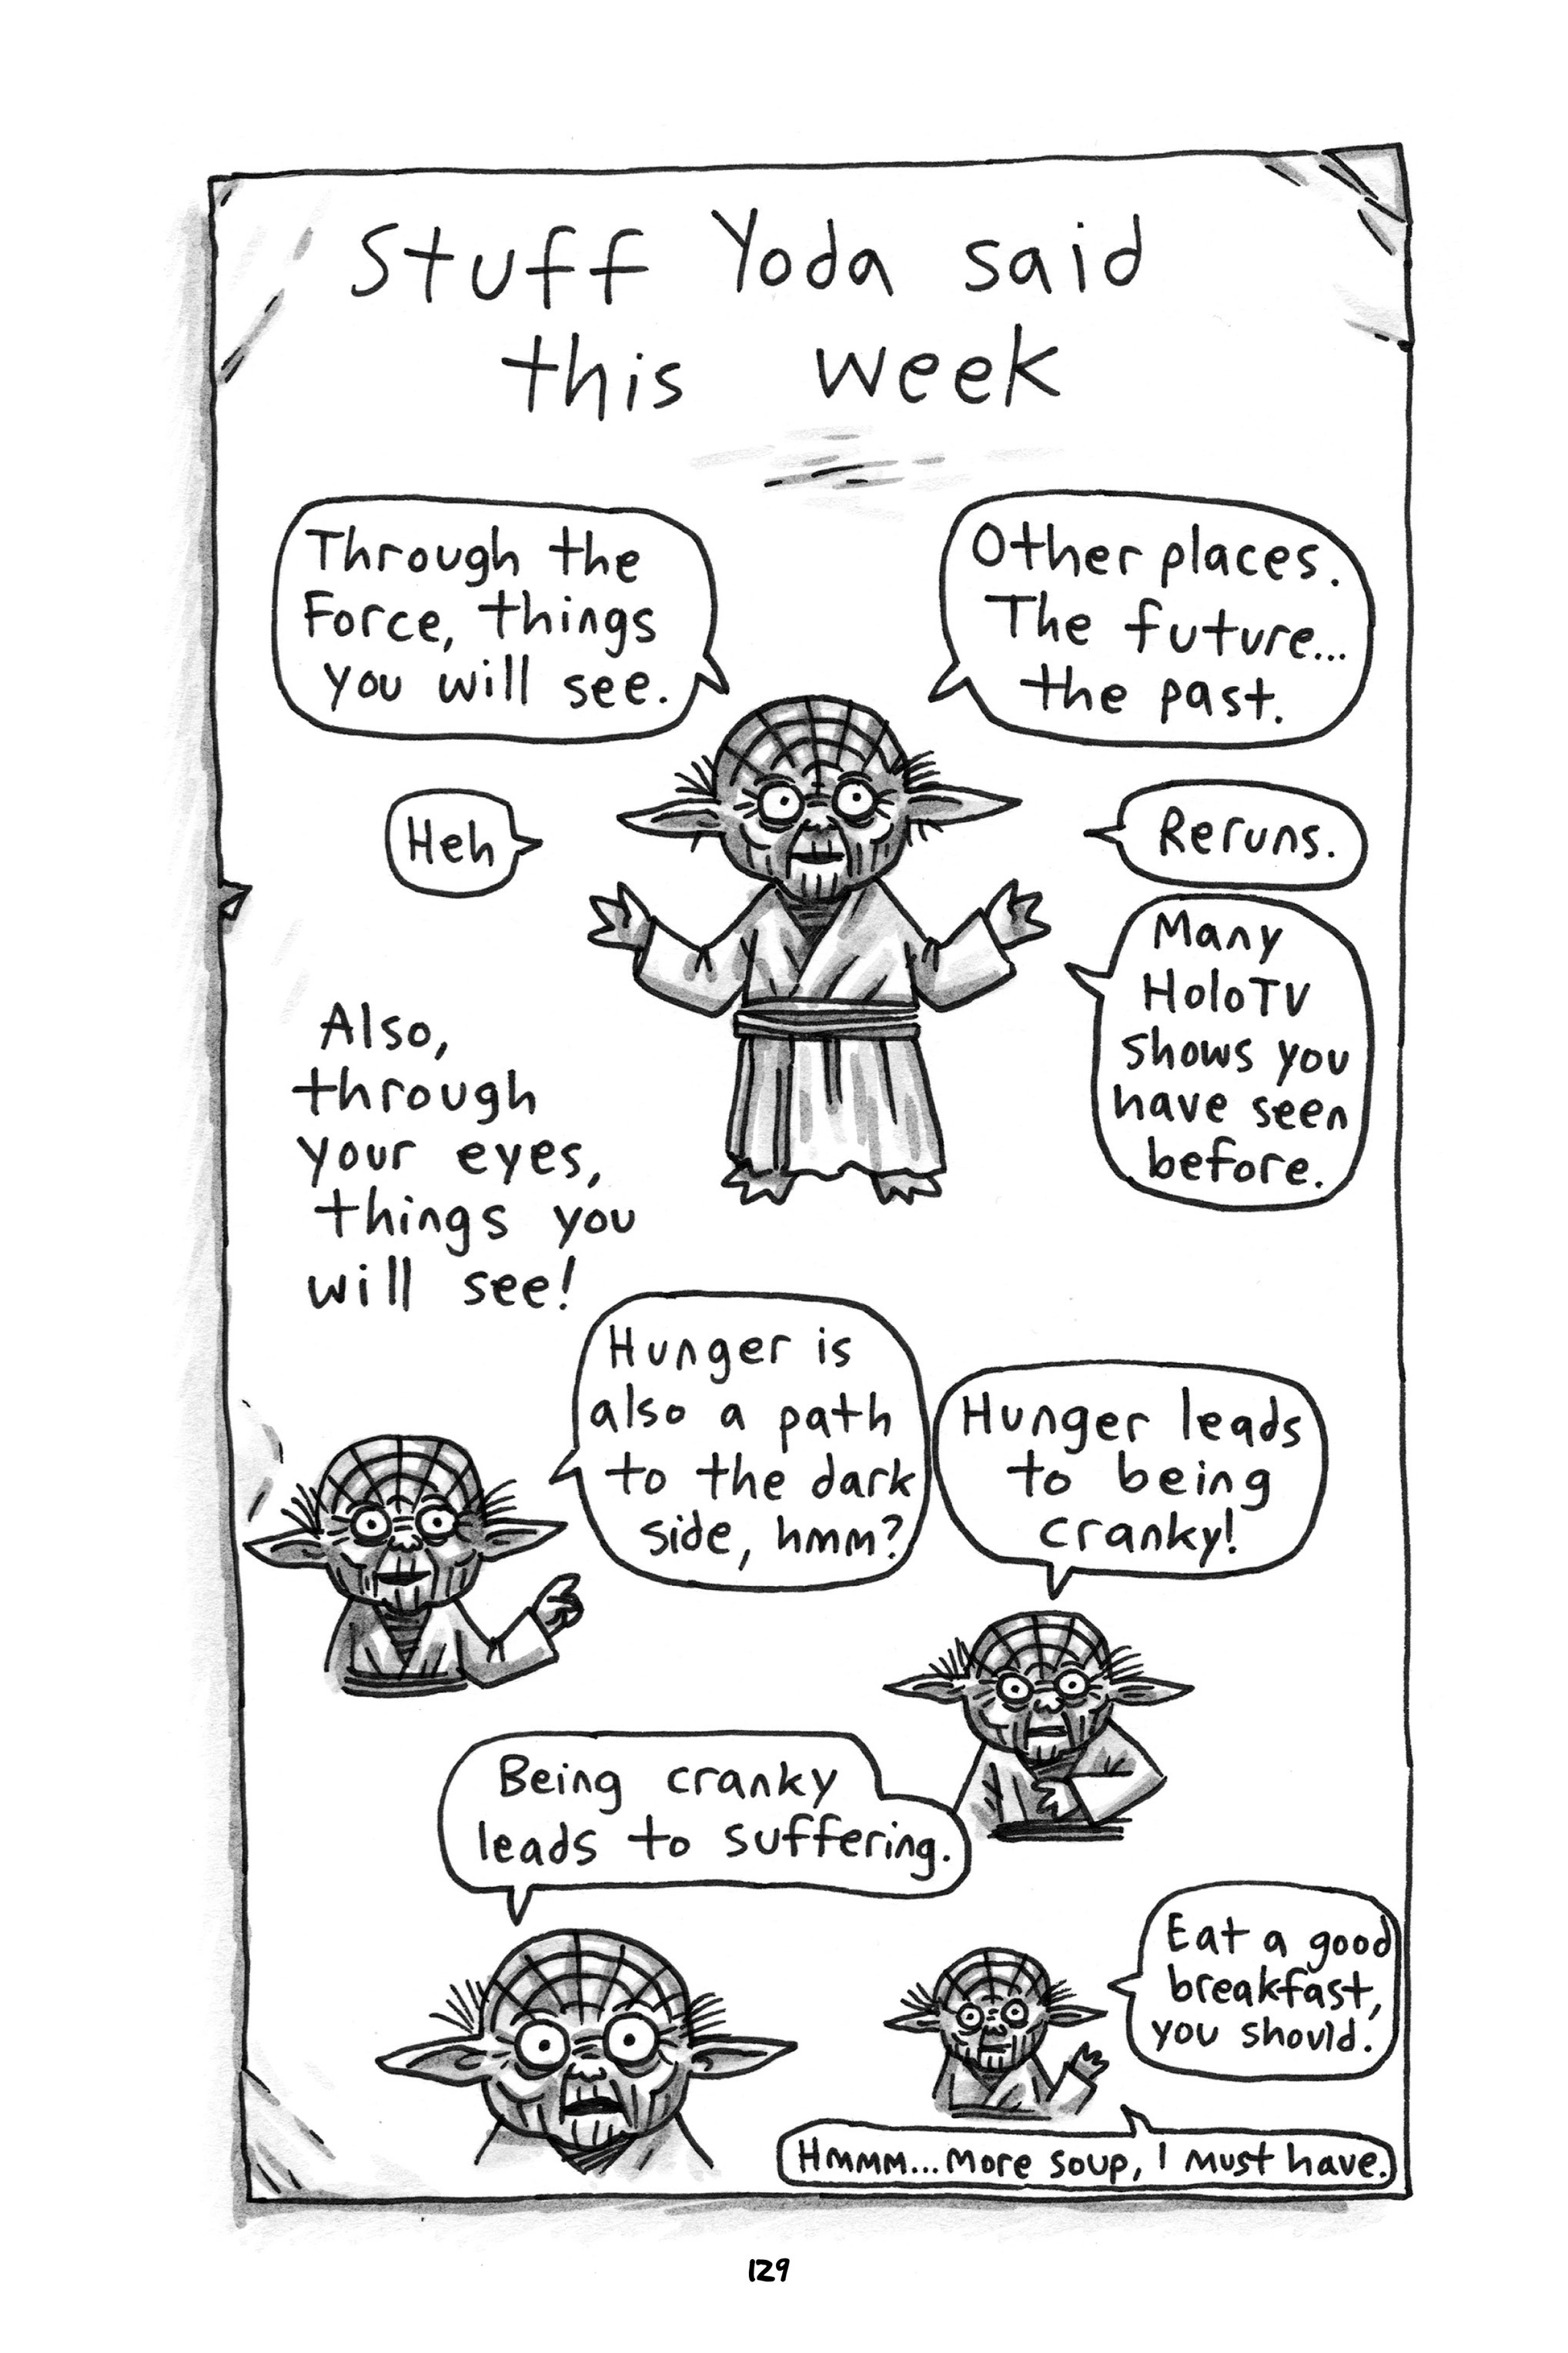 Stuff Yoda said
this week
Through the
Force, things
you will see.
Other places.
The future...
the past.
Heh
Reruns.
Many
HoloTV
shows you
have seen
before.
Also,
through
your eyes,
things you
will see!
Hunger is
also a path
to the dark
side, hmm?
Hunger leads
to being
cranky!
Being cranky
leads to suffering.
Eat a good
breakfast,
you should.
Hmmm...More soup, I must have.
129